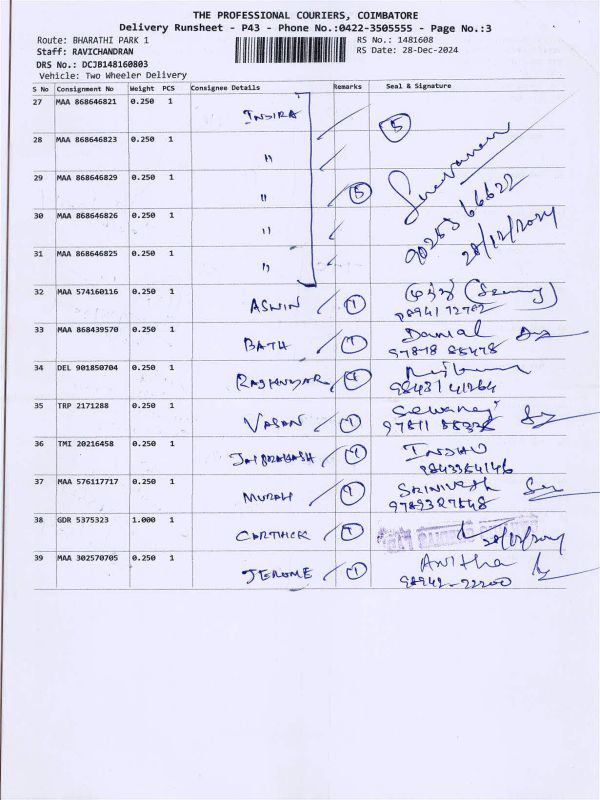 THE PROFESSIONAL COURIERS, COIMBATORE
Delivery Runsheet - P43 - Phone No.:0422-3505555 - Page No.:3
Route: BHARATHI PARK 1
RS No.: 1481608
Staff: RAVICHANDRAN
RS Date: 28-Dec-2024
DRS No.: DCJB148160803
Vehicle: Two Wheeler Delivery
S No Consignment No Weight PCS Consignee Details Remarks Seal & Signature
27 MAA 868646821 0.250 1 INDIRA 5
28 MAA 868646823 0.250 1 "
29 MAA 868646829 0.250 1 " 5
30 MAA 868646826 0.250 1 " 28/12/2024
31 MAA 868646825 0.250 1 "
32 MAA 574160116 0.250 1 ASWIN 1
33 MAA 868439570 0.250 1 BATH 1 Danial
34 DEL 901850704 0.250 1 1
98431 41264
35 TRP 2171288 0.250 1 VASAN 1
36 TMI 20216458 0.250 1 JAIPRAKASH 1
37 MAA 576117717 0.250 1 MURALI 1
9789327548
38 GDR 5375323 1.000 1 CARTHICK 1 28/12/2024
39 MAA 302570705 0.250 1 JEROME 1 Anitha
98942-22200